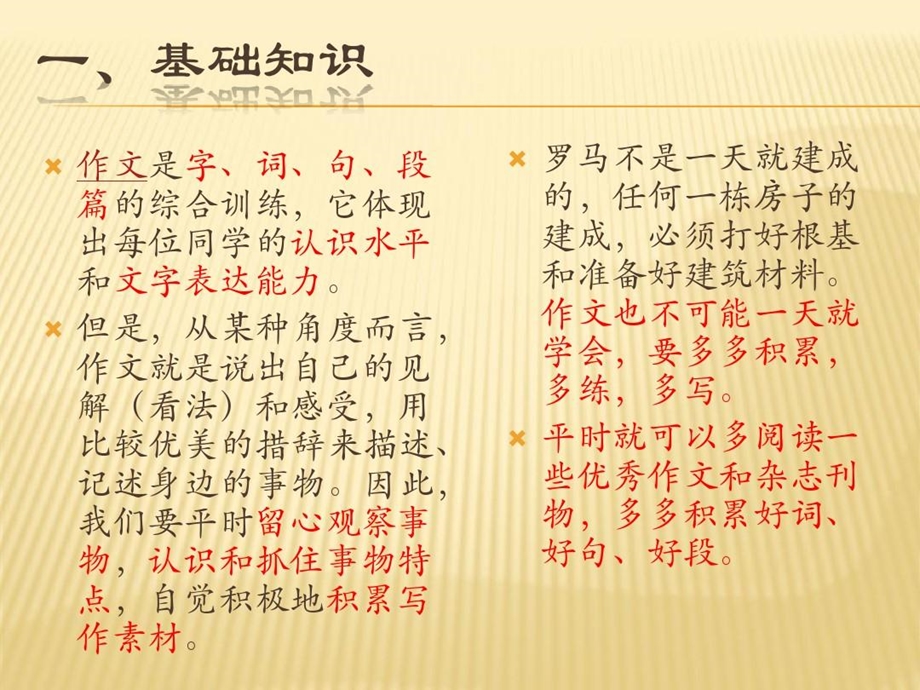 一、基础知识
作文是字、词、句、段
篇的综合训练，它体现
出每位同学的认识水平
和文字表达能力。
但是，从某种角度而言，
作文就是说出自己的见
解（看法）和感受，用
比较优美的措辞来描述、
记述身边的事物。因此，
我们要平时留心观察事
物，认识和抓住事物特
点，自觉积极地积累写
作素材。
罗马不是一天就建成
的，任何一栋房子的
建成，必须打好根基
和准备好建筑材料。
作文也不可能一天就
学会，要多多积累，
多练，多写。
平时就可以多阅读一
些优秀作文和杂志刊
物，多多积累好词、
好句、好段。